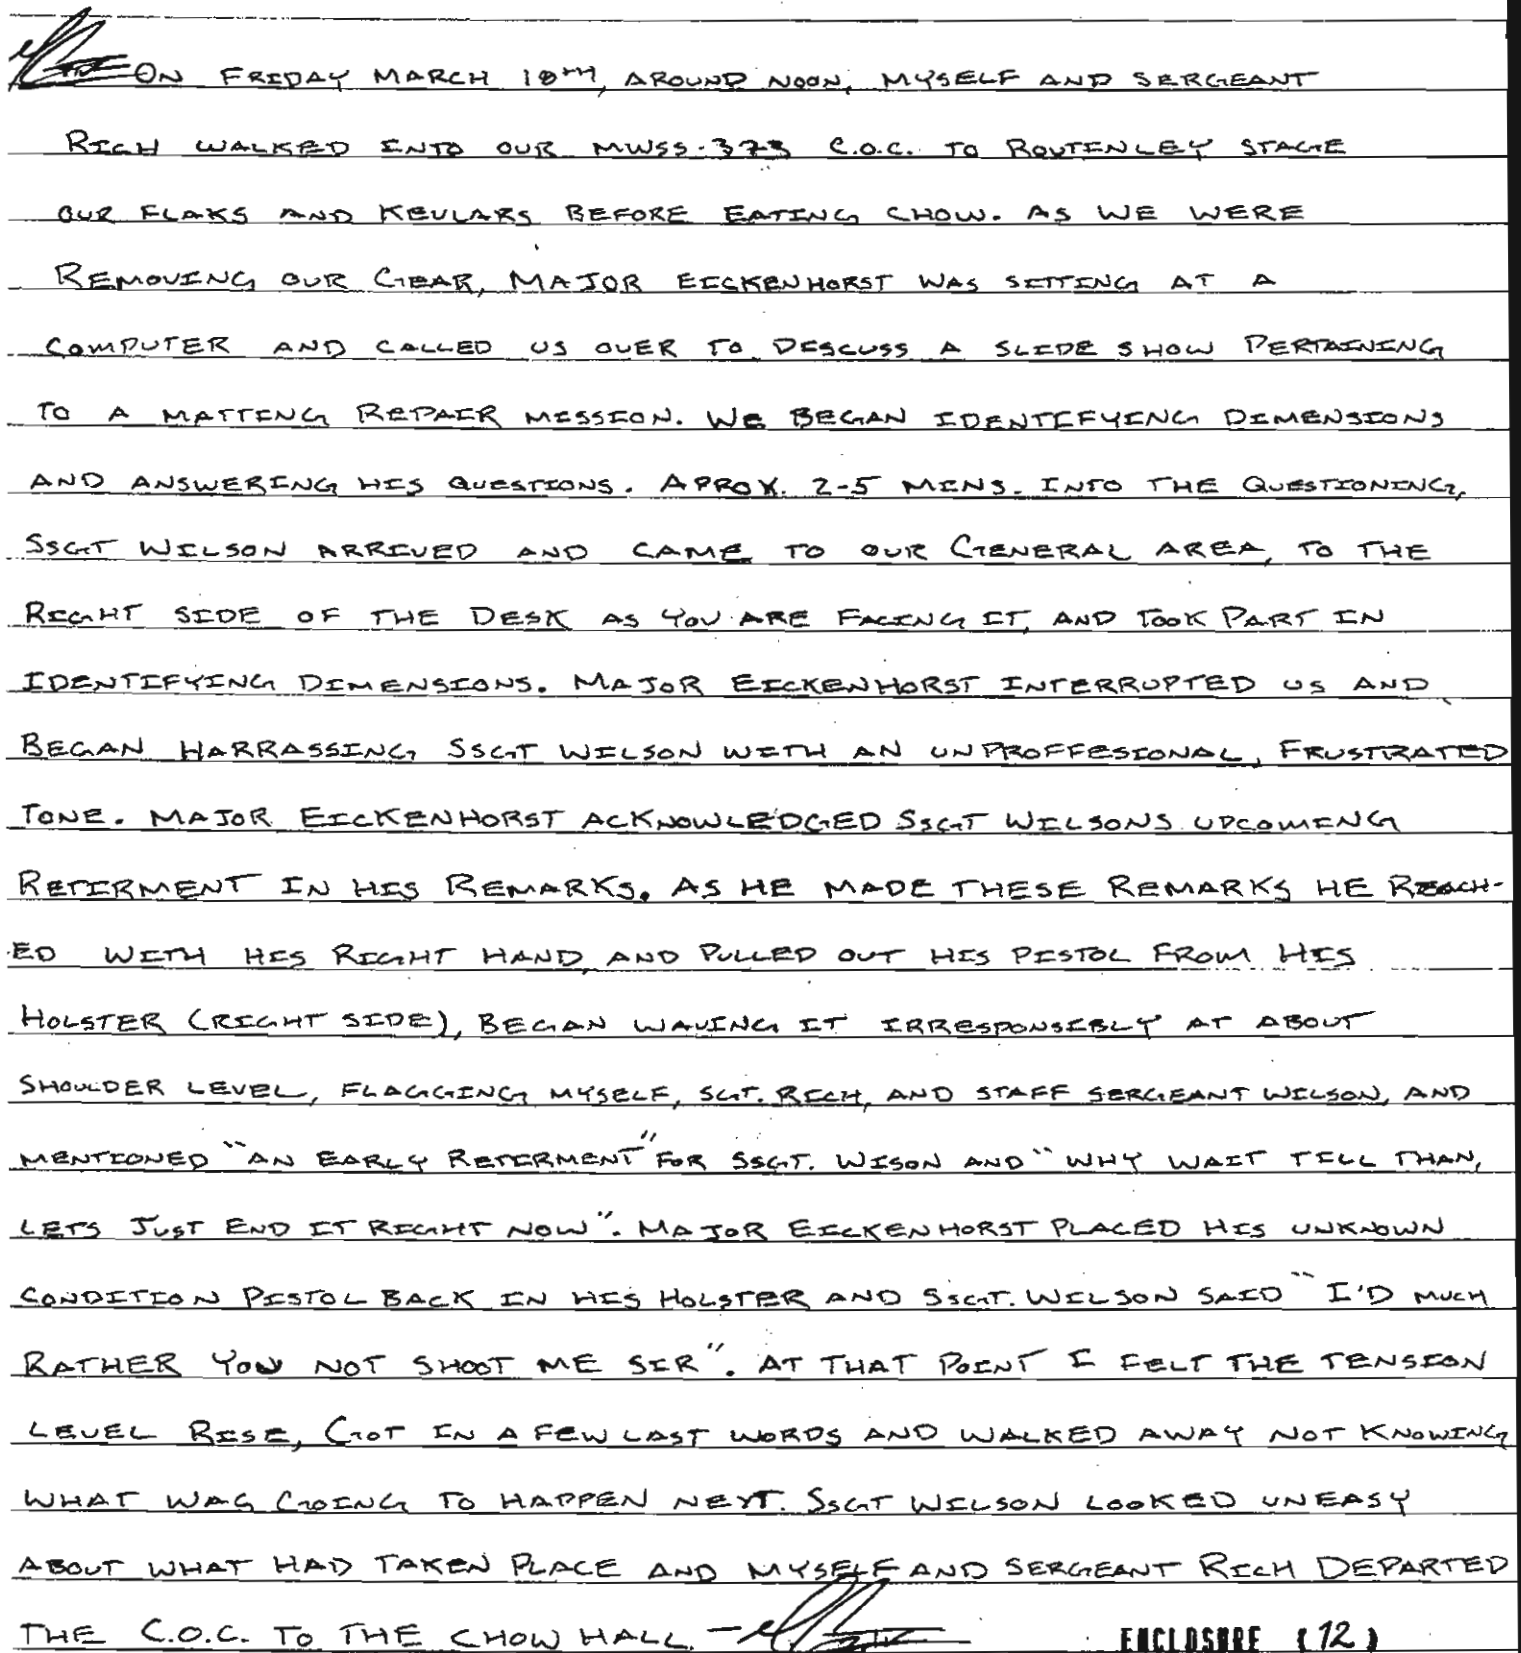 ON FRIDAY MARCH 18TH, AROUND NOON, MYSELF AND SERGEANT
RICH WALKED INTO OUR MWSS-373 C.O.C. TO ROUTINLEY STAGE
OUR FLAKS AND KEVLARS BEFORE EATING CHOW. AS WE WERE
REMOVING OUR GEAR, MAJOR EICKENHORST WAS SITTING AT A
COMPUTER AND CALLED US OVER TO DISCUSS A SLIDE SHOW PERTAINING
TO A MATTING REPAIR MISSION. WE BEGAN IDENTIFYING DIMENSIONS
AND ANSWERING HIS QUESTIONS. APROX. 2-5 MINS. INTO THE QUESTIONING,
SSGT WILSON ARRIVED AND CAME TO OUR GENERAL AREA, TO THE
RIGHT SIDE OF THE DESK AS YOU ARE FACING IT, AND TOOK PART IN
IDENTIFYING DIMENSIONS. MAJOR EICKENHORST INTERRUPTED US AND
BEGAN HARRASSING SSGT WILSON WITH AN UNPROFFESIONAL, FRUSTRATED
TONE. MAJOR EICKENHORST ACKNOWLEDGED SSGT WILSONS UPCOMING
RETIRMENT IN HIS REMARKS. AS HE MADE THESE REMARKS HE REACH-
ED WITH HIS RIGHT HAND, AND PULLED OUT HIS PISTOL FROM HIS
HOLSTER (RIGHT SIDE), BEGAN WAVING IT IRRESPONSIBLY AT ABOUT
SHOULDER LEVEL, FLAGGING MYSELF, SGT. RICH, AND STAFF SERGEANT WILSON, AND
MENTIONED "AN EARLY RETIRMENT" FOR SSGT. WISON AND "WHY WAIT TILL THAN,
LETS JUST END IT RIGHT NOW". MAJOR EICKENHORST PLACED HIS UNKNOWN
CONDITION PISTOL BACK IN HIS HOLSTER AND SSGT. WILSON SAID "I'D MUCH
RATHER YOU NOT SHOOT ME SIR". AT THAT POINT I FELT THE TENSION
LEVEL RISE, GOT IN A FEW LAST WORDS AND WALKED AWAY NOT KNOWING
WHAT WAS GOING TO HAPPEN NEXT. SSGT WILSON LOOKED UNEASY
ABOUT WHAT HAD TAKEN PLACE AND MYSELF AND SERGEANT RICH DEPARTED
THE C.O.C. TO THE CHOW HALL. -
ENCLOSURE (12)